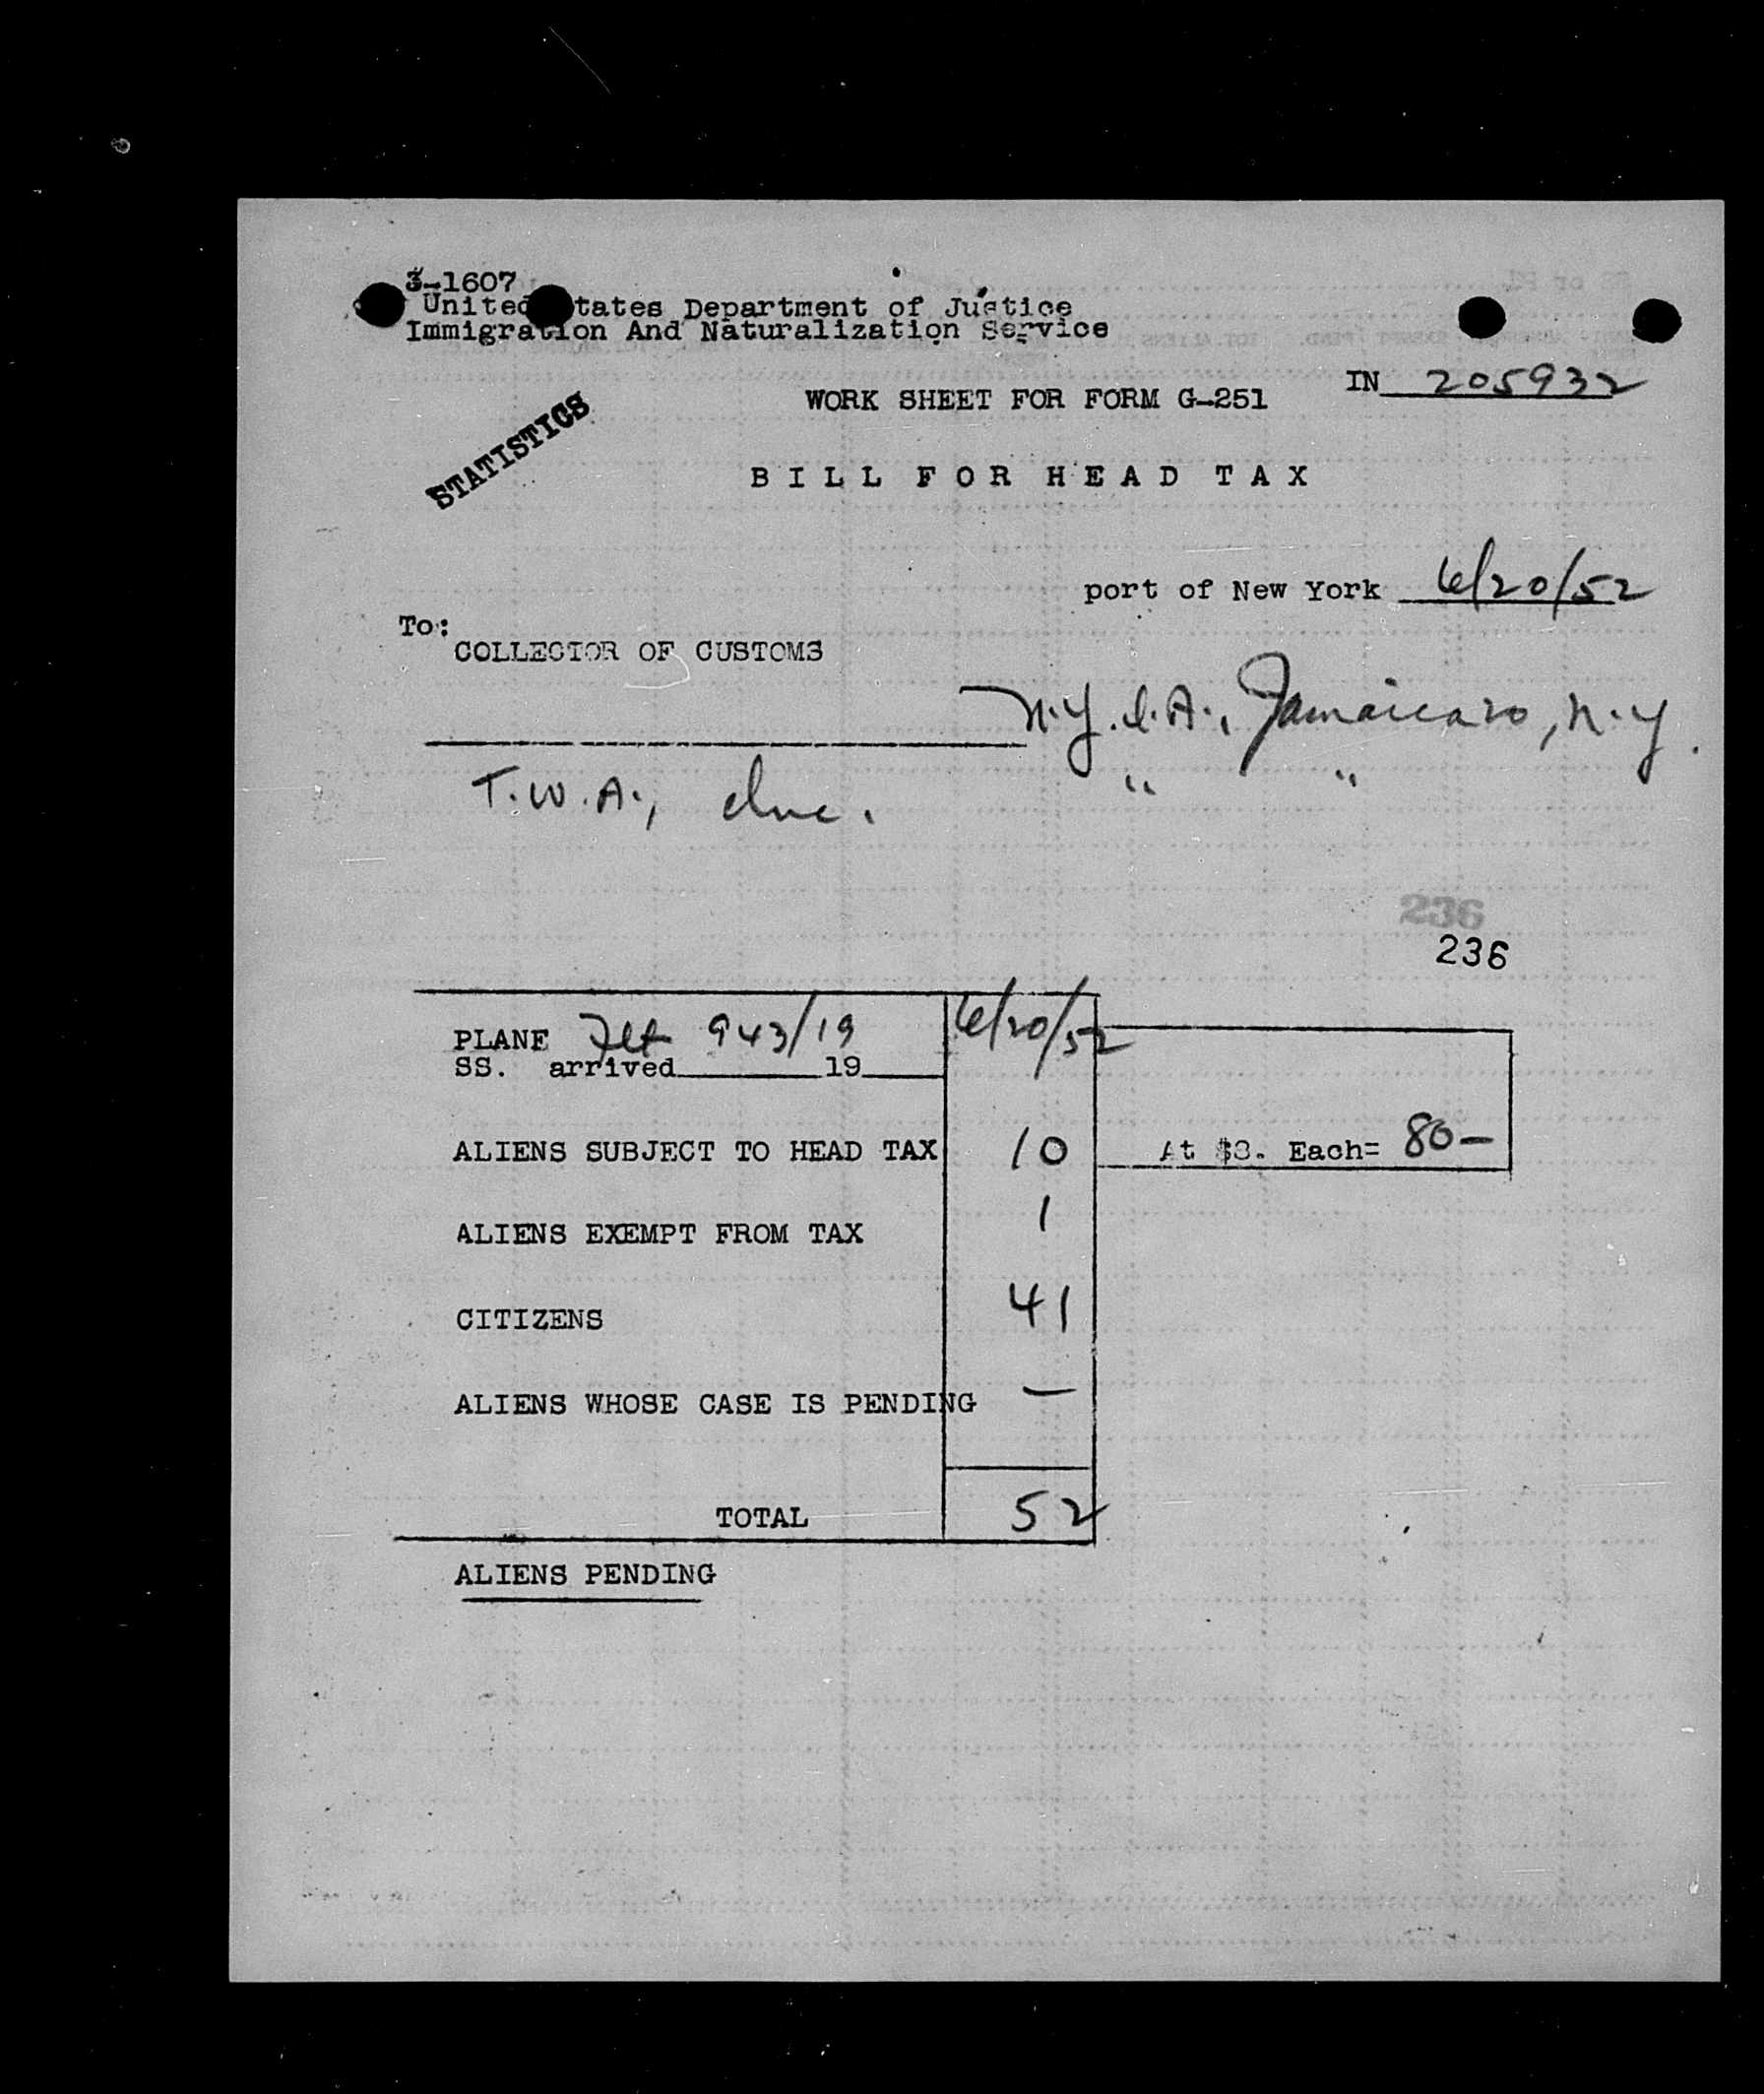 3-1607
United States Department of Justice
Immigration And Naturalization Service
IN 205932
WORK SHEET FOR FORM G-251
STATISTICS
BILL FOR HEAD TAX
port of New York 6/20/52
To:
COLLECTOR OF CUSTOMS
N.Y.I.A., Jamaica, N.Y.
T.W.A., Inc. " "
236
236
PLANE Flt 943/19 6/20/52
SS. arrived 19
ALIENS SUBJECT TO HEAD TAX 10 At $8. Each= 80—
ALIENS EXEMPT FROM TAX 1
CITIZENS 41
ALIENS WHOSE CASE IS PENDING —
TOTAL 52
ALIENS PENDING